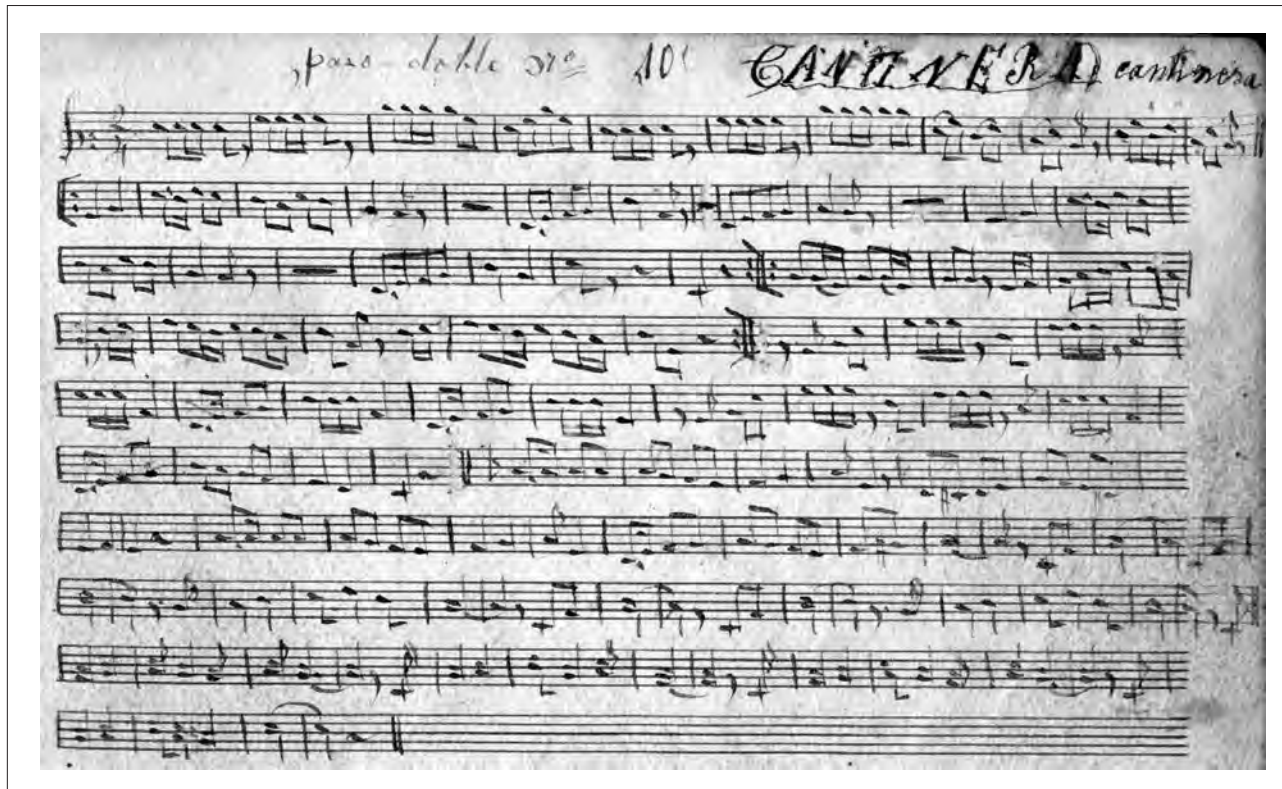 paso-doble nº 10 CANTINERA cantinera